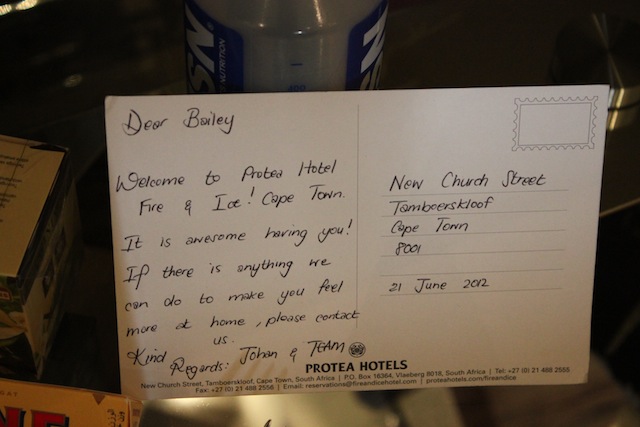 SN
NUTRITION
SN
Dear Bailey
Welcome to Protea Hotel
Fire & Ice! Cape Town.
It is awesome having you!
If there is anything we
can do to make you feel
more at home, please contact
us.
Kind
Regards: Johan & TEAM
New Church Street
Tamboerskloof
Cape Town
8001
21 June 2012
PROTEA HOTELS
New Church Street, Tamboerskloof, Cape Town, South Africa | P.O. Box 16364, Vlaeberg 8018, South Africa | Tel: +27 (0) 21 488 2555
Fax: +27 (0) 21 488 2556 | Email: reservations@fireandicehotel.com | proteahotels.com/fireandice